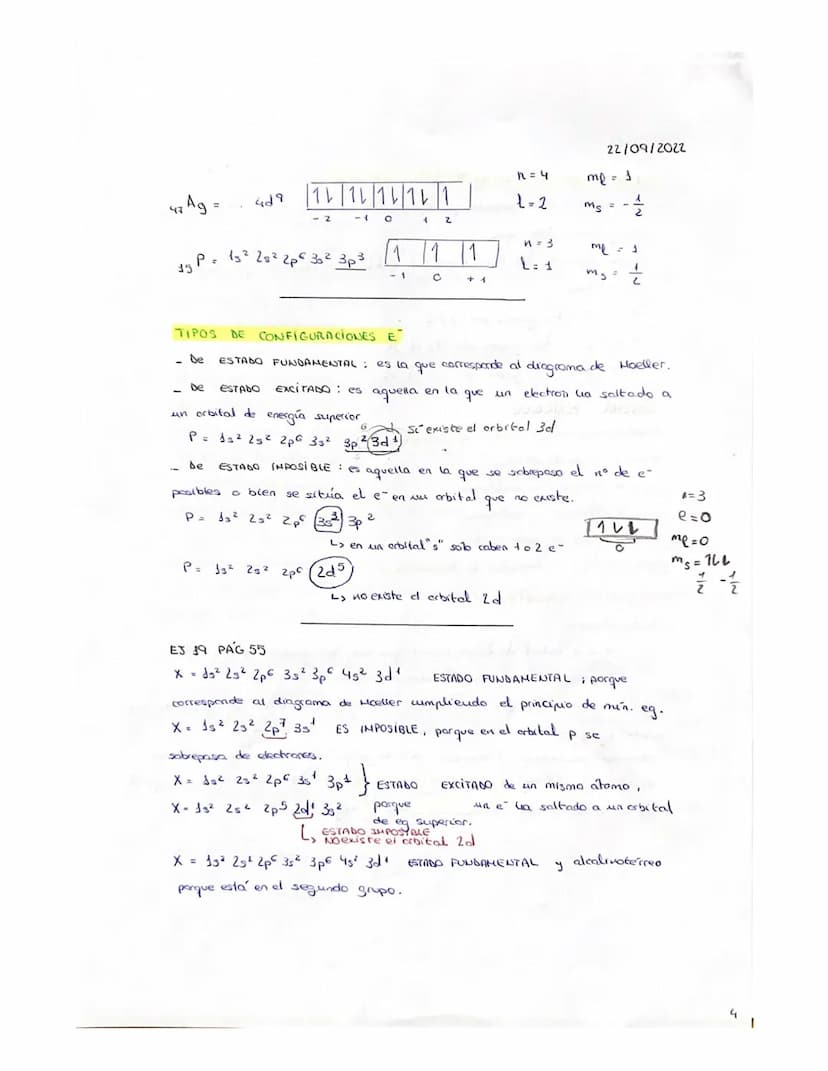 22/09/2022
47Ag = . 4d⁹ |1L|1L|1L|1L|1| n = 4 mℓ = 1
-2 -1 0 1 2 ℓ = 2 ms = -1/2
15P = 1s² 2s² 2p⁶ 3s² 3p³ |1|1|1| n = 3 mℓ = 1
-1 0 +1 L = 1 ms = 1/2
TIPOS DE CONFIGURACIONES E⁻
- De ESTADO FUNDAMENTAL : es la que corresponde al diagrama de Moeller.
- De ESTADO EXCITADO : es aquella en la que un electron ha saltado a
un orbital de energía superior
P = 1s² 2s² 2p⁶ 3s² 3p² 3d¹ Sí existe el orbital 3d
- De ESTADO IMPOSIBLE : es aquella en la que se sobrepasa el nº de e⁻
posibles o bien se sitúa el e⁻ en un orbital que no existe.
P = 1s² 2s² 2p⁶ 3s³ 3p²
↳ en un orbital "s" solo caben 1 o 2 e⁻
|1LL|
0
n=3
ℓ=0
mℓ=0
ms = 1LL
1/2 -1/2
P = 1s² 2s² 2p⁶ 2d⁵
↳ no existe el orbital 2d
EJ 19 PÁG 55
X = 1s² 2s² 2p⁶ 3s² 3p⁶ 4s² 3d¹ ESTADO FUNDAMENTAL ; porque
corresponde al diagrama de Moeller cumpliendo el principio de mín. eg.
X = 1s² 2s² 2p⁷ 3s¹ ES IMPOSIBLE, porque en el orbital p se
sobrepasa de electrones.
X = 1s² 2s² 2p⁶ 3s¹ 3p¹ } ESTADO EXCITADO de un mismo átomo,
X = 1s² 2s² 2p⁵ 2d¹ 3s² porque un e⁻ ha saltado a un orbital
de eg superior.
↳ ESTADO IMPOSIBLE
NO existe el orbital 2d
X = 1s² 2s² 2p⁶ 3s² 3p⁶ 4s² 3d¹ ESTADO FUNDAMENTAL y alcalinotérreo
porque está en el segundo grupo.
4